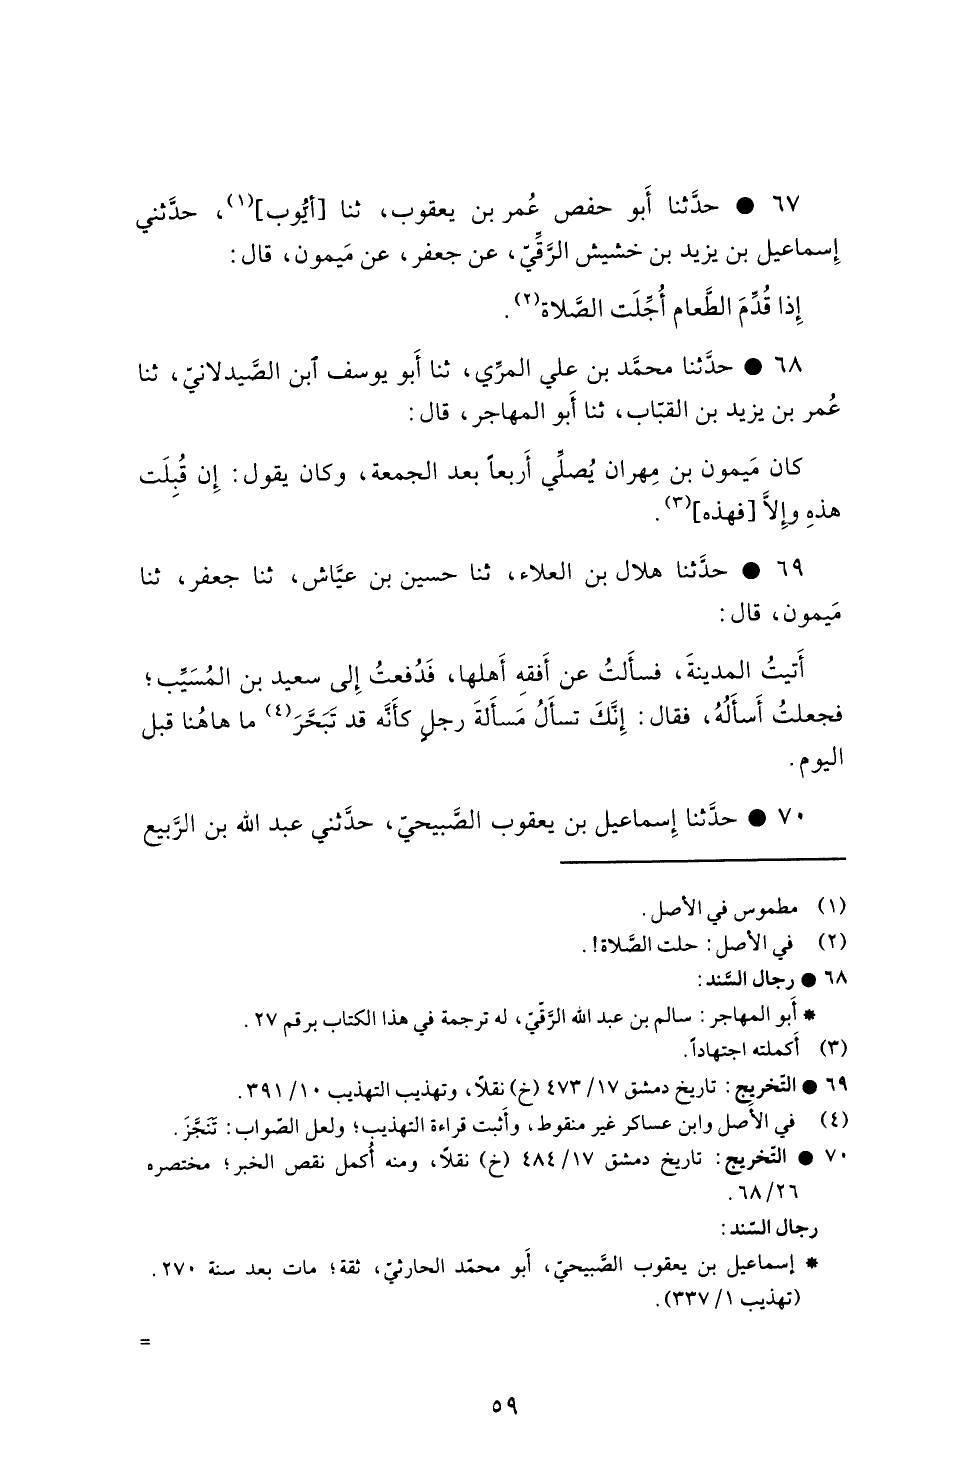 ٦٧ ● حدَّثنا أَبو حفص عُمر بن يعقوب، ثنا [أيُّوب]⁽¹⁾، حدَّثني
إسماعيل بن يزيد بن خشيش الرَّقِّيّ، عن جعفر، عن مَيمون، قال:
إذا قُدِّمَ الطَّعام أُجِّلَت الصَّلاة⁽٢⁾.
٦٨ ● حدَّثنا محمَّد بن علي المرِّي، ثنا أَبو يوسف ٱبن الصَّيدلانيّ، ثنا
عُمر بن يزيد بن القبّاب، ثنا أَبو المهاجر، قال:
كان مَيمون بن مِهران يُصلِّي أَربعاً بعد الجمعة، وكان يقول: إِن قُبِلَت
هذهِ وإِلاَّ [فهذه]⁽٣⁾.
٦٩ ● حدَّثنا هلال بن العلاء، ثنا حسين بن عيَّاش، ثنا جعفر، ثنا
مَيمون، قال:
أَتيتُ المدينةَ، فسأَلتُ عن أَفقهِ أَهلها، فَدُفعتُ إِلى سعيد بن المُسَيِّب؛
فجعلتُ أَسأَلُهُ، فقال: إِنَّكَ تسأَلُ مَسأَلةَ رجلٍ كأَنَّه قد تَبَحَّرَ⁽٤⁾ ما هاهُنا قبل
اليوم.
٧٠ ● حدَّثنا إِسماعيل بن يعقوب الصَّبيحيّ، حدَّثني عبد الله بن الرَّبيع
(١) مطموس في الأصل.
(٢) في الأصل: حلت الصَّلاة!.
٦٨ ● رجال السَّند:
* أَبو المهاجر: سالم بن عبد الله الرَّقّيّ، له ترجمة في هذا الكتاب برقم ٢٧.
(٣) أَكملته اجتهاداً.
٦٩ ● التّخريج: تاريخ دمشق ١٧/ ٤٧٣ (خ) نقلاً، وتهذيب التهذيب ١٠/ ٣٩١.
(٤) في الأصل وابن عساكر غير منقوط، وأَثبت قراءة التهذيب؛ ولعل الصّواب: تَنَجَّزَ.
٧٠ ● التّخريج: تاريخ دمشق ١٧/ ٤٨٤ (خ) نقلاً، ومنه أُكمل نقص الخبر؛ مختصره
٢٦/ ٦٨.
رجال السّند:
* إسماعيل بن يعقوب الصَّبيحيّ، أَبو محمّد الحارثيّ، ثقة؛ مات بعد سنة ٢٧٠.
(تهذيب ١/ ٣٣٧).
=
٥٩